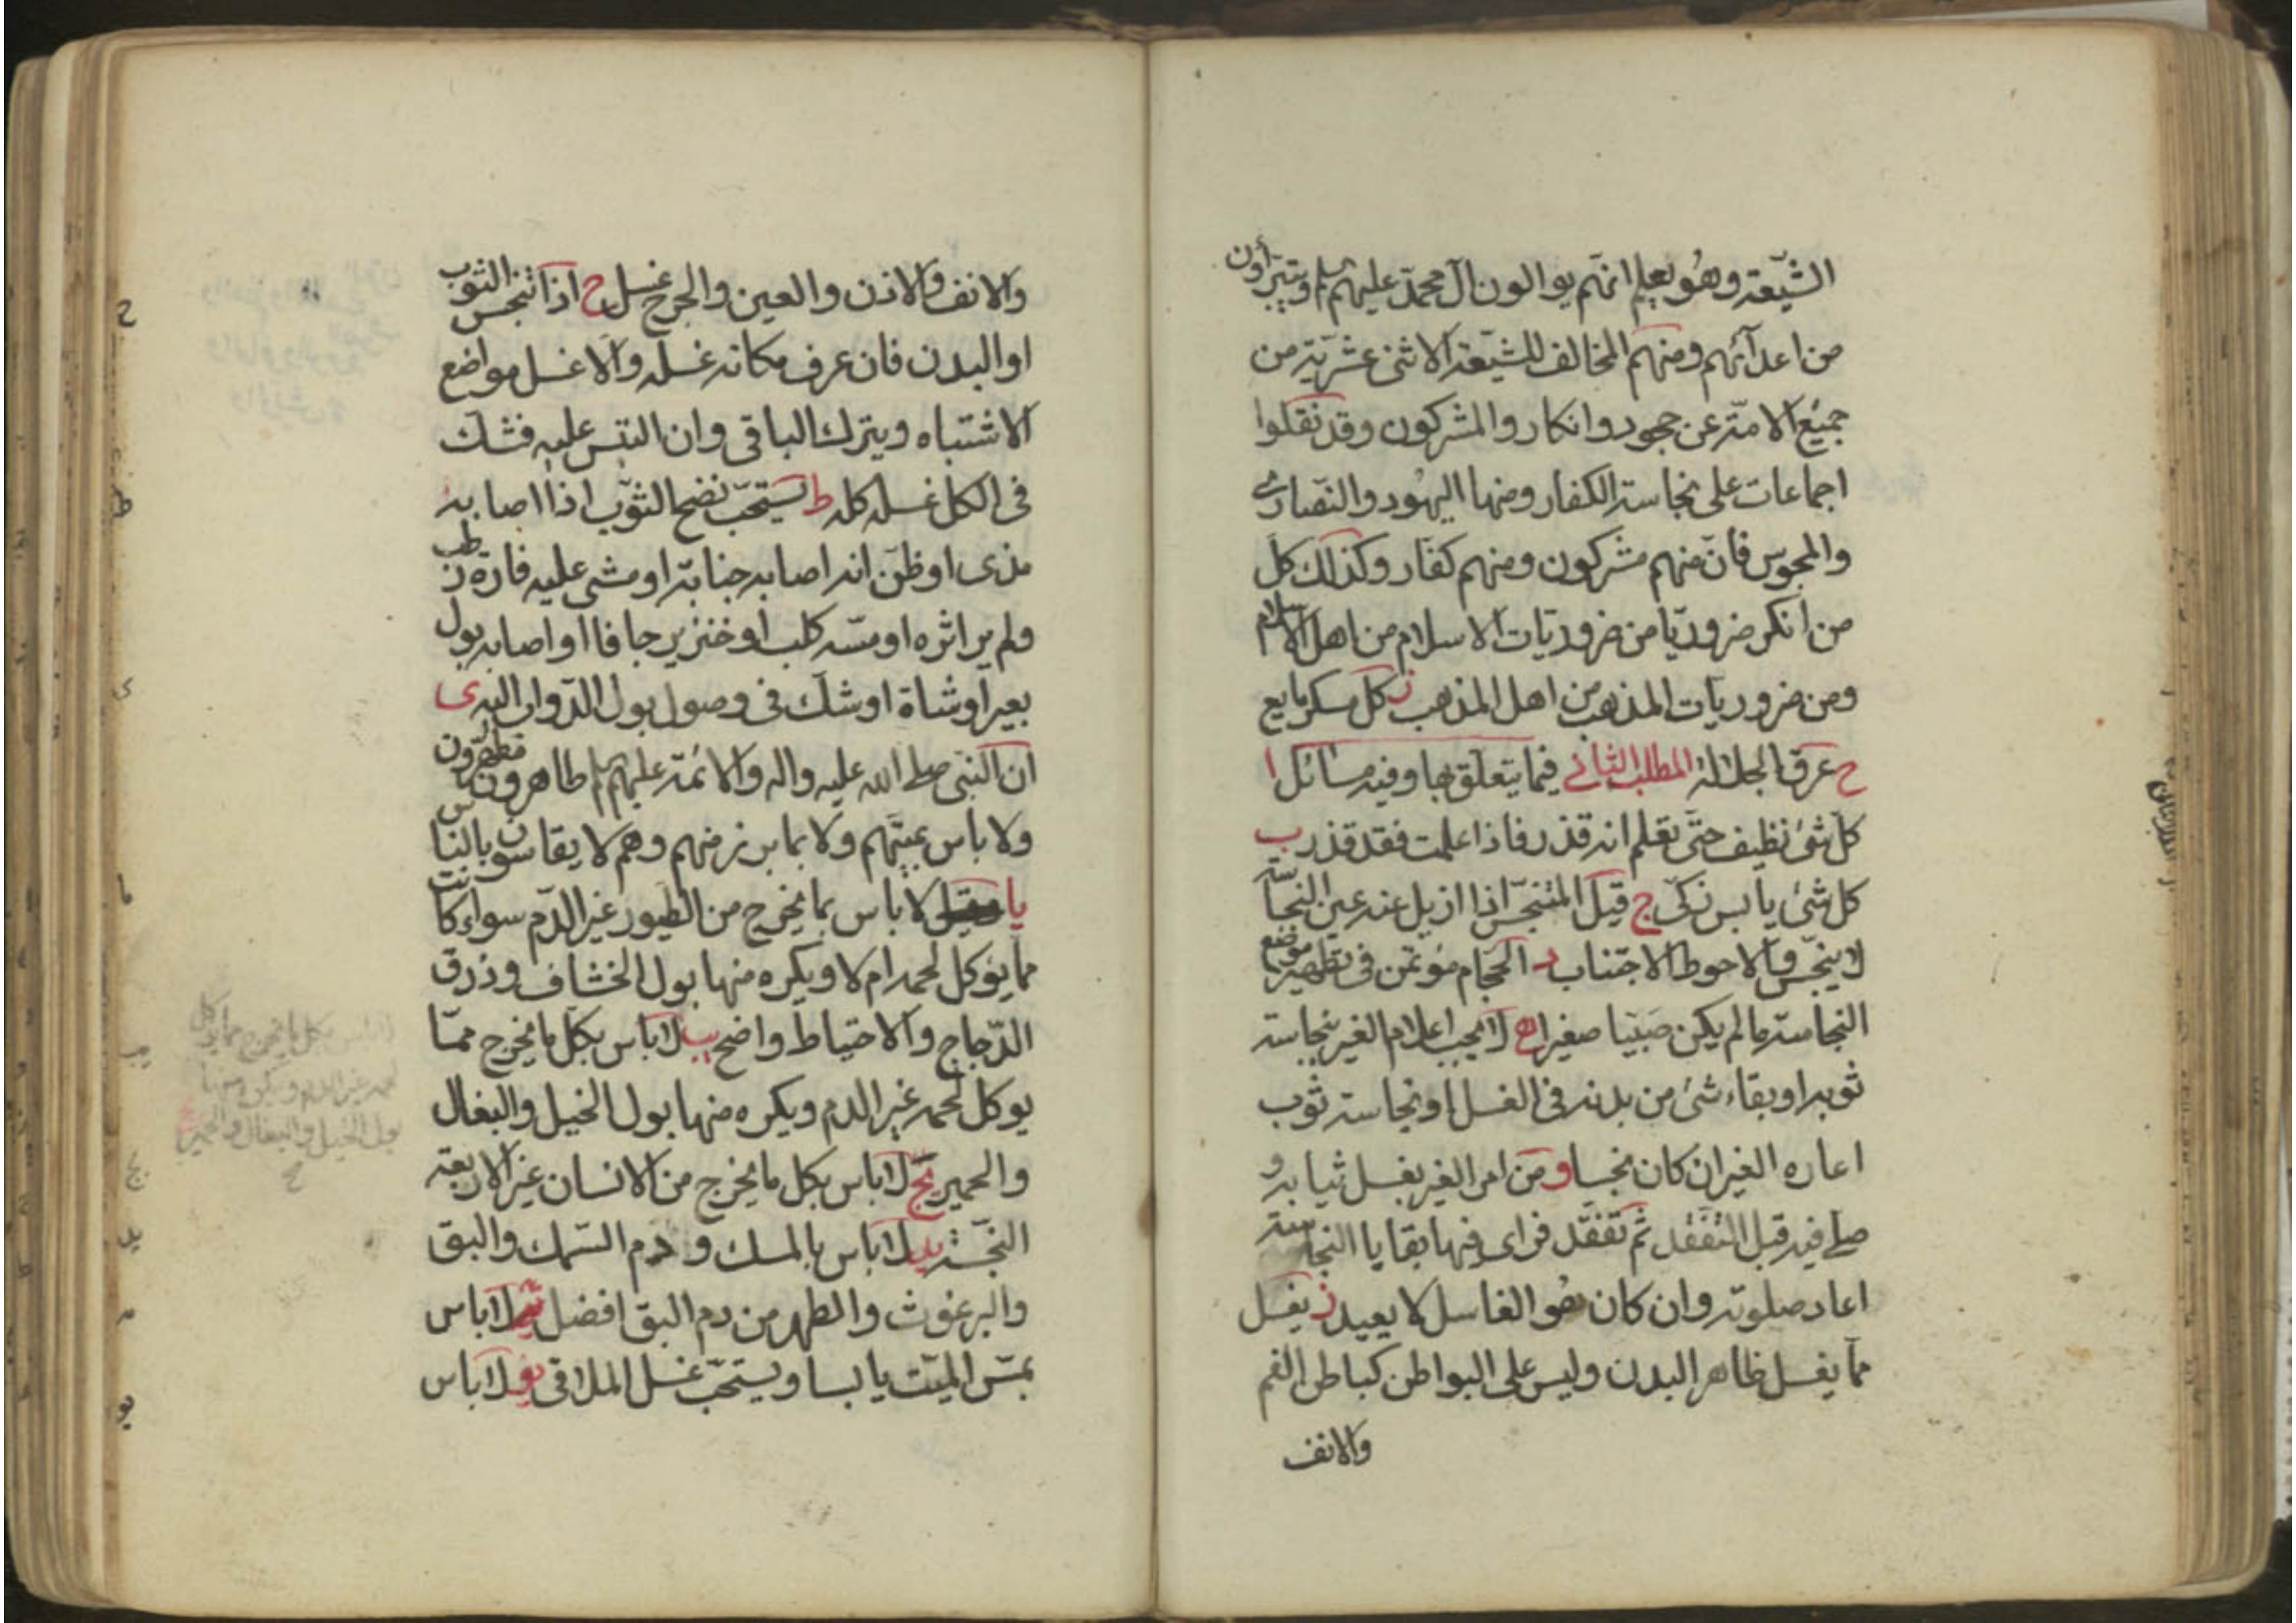 الشّيعة وهو يعلم انهم يوالون آل محمّد عليهم السلم ويتبرأون
من اعدآئهم ومنهم المخالف للشيعة الاثنى عشريّة من
جميع الامّة عن جحود وانكار والمشركون وقد نقلوا
اجماعات على نجاسة الكفار ومنها اليهود والنّصارى
والمجوس فانّ منهم مشركون ومنهم كفّار وكذلك كل
من انكر ضروريّا من ضروريّات الاسلام من اهل الاسلام
ومن ضروريات المذهب من اهل المذهب ز كل مسكر مايع
ح عرق الجلالة المطلب الثانى فيما يتعلق بها وفيه مسائل ا
كل شئ نظيف حتّى تعلم انه قذر فاذا علمت فقد قذر ب
كل شئ يابس زكىّ ج قيل المتنجّس اذا ازيل عنه عين النجاسة
لا ينجّس والاحوط الاجتناب د الحجّام مؤتمن فى تطهير موضع
النجاسة ما لم يكن صبيّا صغيرا ه لا يجب اعلام الغير بنجاسة
ثوبه او بقاء شئ من بدنه فى الغسل او نجاسة ثوب
اعاره الغير ان كان نجسا و من امر الغير بغسل ثيابه و
صلى فيه قبل التفقّد ثم تفقّد فراى فيها بقايا النجاسة
اعاد صلوته وان كان هو الغاسل لا يعيد ز يغسل
ما يغسل ظاهر البدن وليس على البواطن كباطن الفم
والانف
والانف والاذن والعين والجرح غسل ح اذا تنجس الثوب
او البدن فان عرف مكانه غسله والا غسل مواضع
الاشتباه ويترك الباقى وان التبس عليه فشك
فى الكل غسله كله ط يستحبّ نضح الثوب اذا اصابه
مذى او ظن انه اصابه جنابة او مشى عليه فارة رطب
ولم ير اثره او مسّه كلب او خنزير جافا او اصابه بول
بعير او شاة او شك فى وصول بول الدّواب اليه ى
ان النبى صلى الله عليه واله والائمة عليهم السلم طاهرون مطهّرون
ولا باس بميّتهم ولا بما برز منهم وهم لا يقاسون بالناس
يا لا باس بما يخرج من الطيور غير الدّم سواء كانت
مما يؤكل لحمه ام لا ويكره منها بول الخشاف وذرق
الدّجاج والاحتياط واضح يب لا باس بكل ما يخرج ممّا
يوكل لحمه غير الدم ويكره منها بول الخيل والبغال
والحمير يج لا باس بكل ما يخرج من الانسان غير الاربعة
النجسة يد لا باس بالمسك و دم السّمك والبق
والبرغوث والطهر من دم البق افضل يه لا باس
بمسّ الميّت يابسا ويستحبّ غسل الملاقى يو لا باس
ح
ط
ى
يا
يب
يج
يد
يو